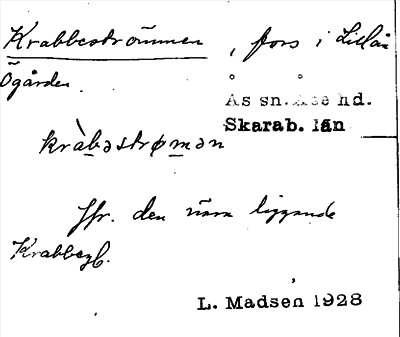 Krabbeströmmen, fors i Lillån
Ögården.
Ås sn. Åse hd.
Skarab. län
kràbəstrømən
Jfr. den nära liggande
Krabbegb.
L. Madsen 1928